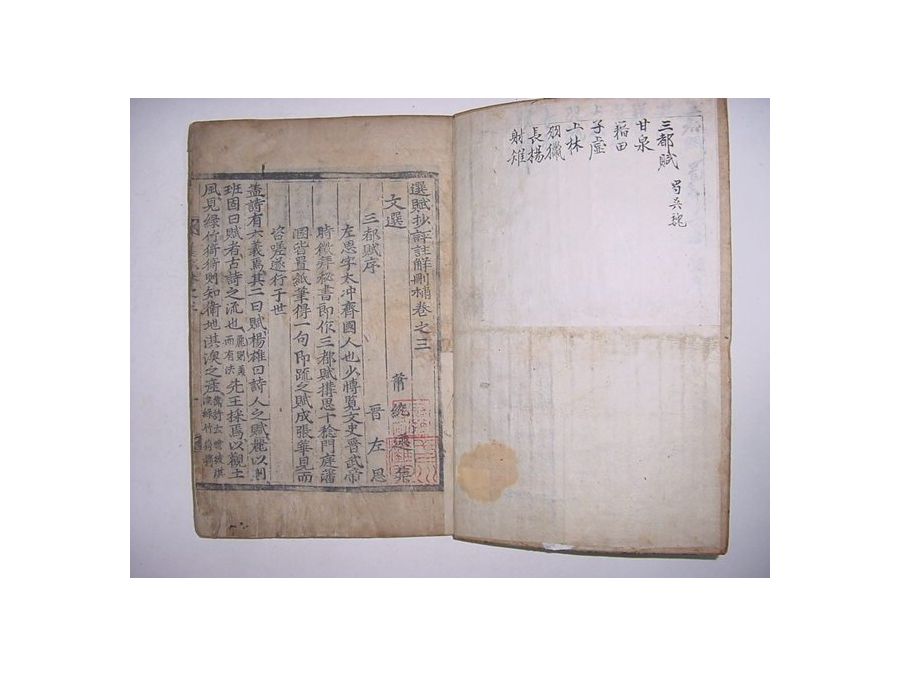 三都賦 蜀吳魏
甘泉
籍田
子虛
上林
羽獵
長楊
射雉
選賦抄評註解刪補卷之三
文選 蕭統
三都賦序 晉左思
左思字太冲齊國人也少博覽文史晉武帝
時徵拜秘書郎作三都賦搆思十稔門庭藩
溷皆置紙筆得一句即疏之賦成張華見而
咨嗟遂行于世
蓋詩有六義焉其二曰賦楊雄曰詩人之賦麗以則
班固曰賦者古詩之流也 先王採焉以觀土
風見綠竹猗猗則知衛地淇澳之產